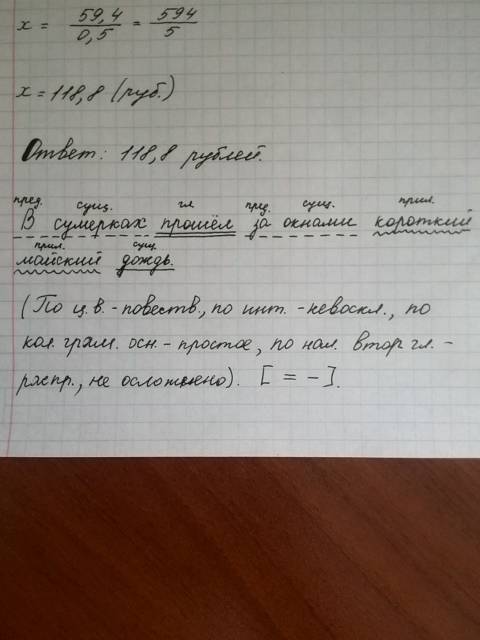 x = 59,4/0,5 = 594/5
x = 118,8 (руб.)
Ответ: 118,8 рублей.
пред. сущ. гл. пред. сущ. прил.
В сумерках прошёл за окнами короткий
прил. сущ.
майский дождь.
(По ц.в. - повеств., по инт. - невоскл., по
кол. грам. осн. - простое, по нал. втор гл. -
распр., не осложнено). [ = - ].